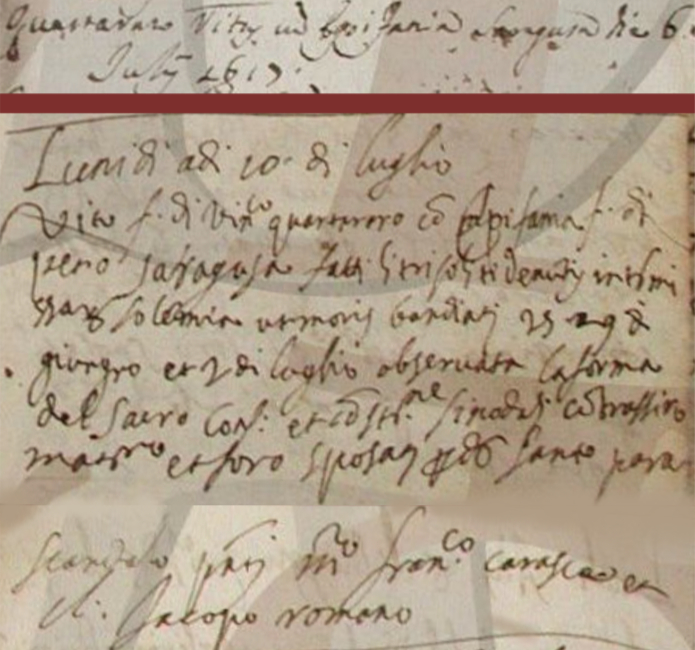 Quartararo Vito cū Epifania Saragusa die 6
July 1617
Lunidi adi 10 di luglio
Vito f. di Vinc.o quartararo cō Epifania f. di
piero saragusa fatti li trisoliti denuntij intr
solemnia bandiati 25 29 di
giugno et 2 di luglio observata la forma
del Sacro Con. et sinodali cōtrassiro
matr.nio et foro sposati santo para
scandalo pnti m.ro fran.co carasca et
cl. Jacopo romano